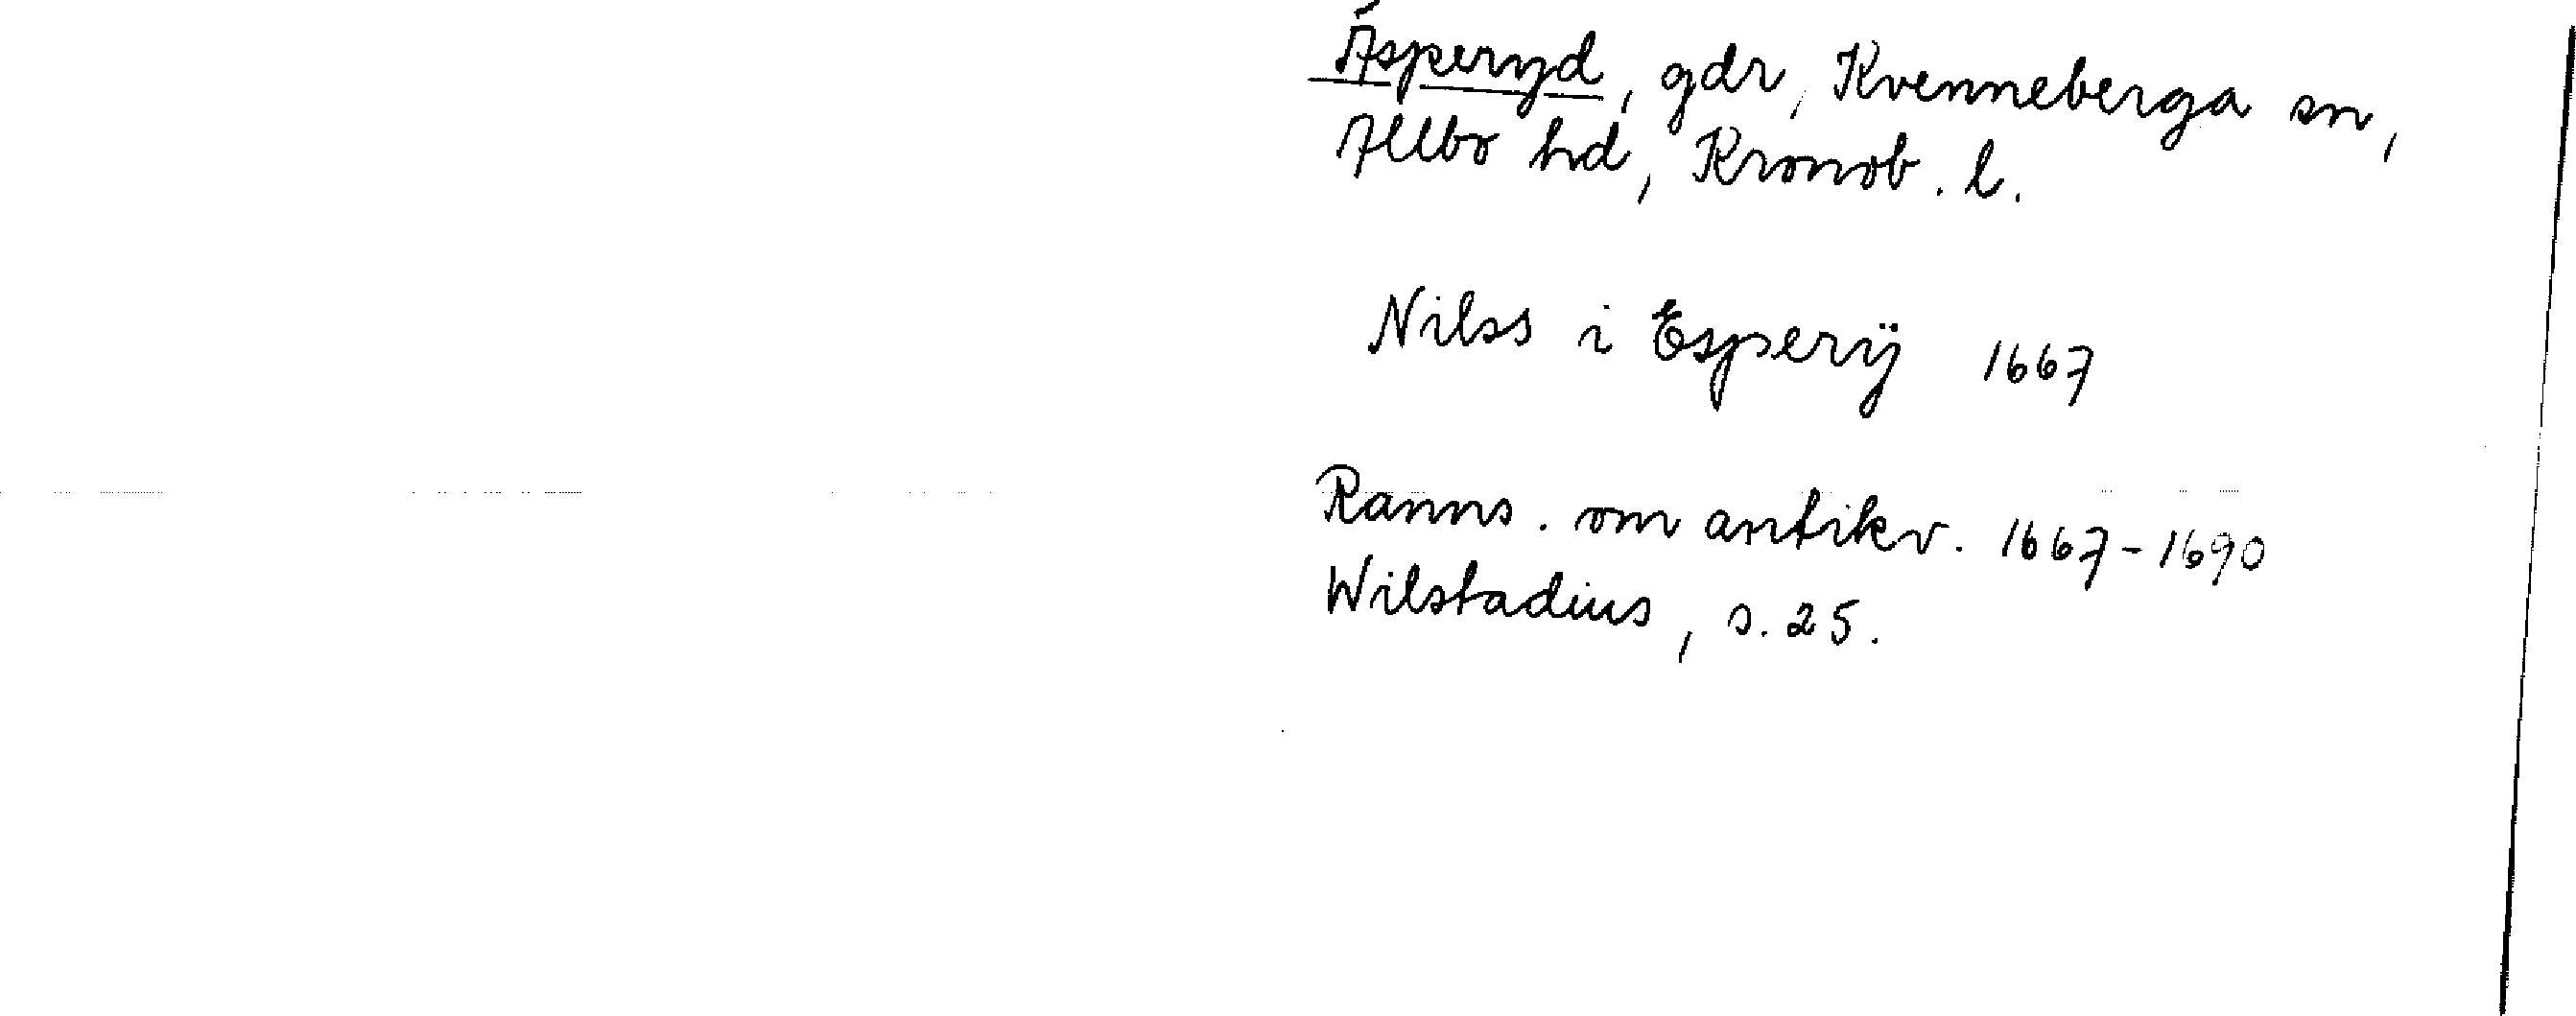 Äsperyd, gdr, Kvenneberga sn,
Allbo hd, Kronob. l.
Nilss i Esperÿ 1667
Ranns. om antikv. 1667-1690
Wilstadius, s. 25.